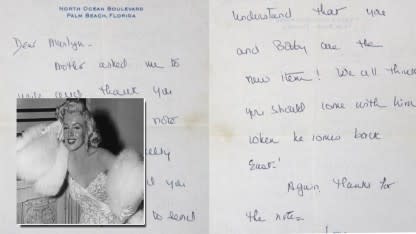 NORTH OCEAN BOULEVARD
PALM BEACH, FLORIDA
Dear Marilyn-
Mother asked me to
thank you
note
you
to send
understand that you
and Bobby are the
new item! We all think
you should come with him
when he comes back
East!
Again, thanks for
the note-